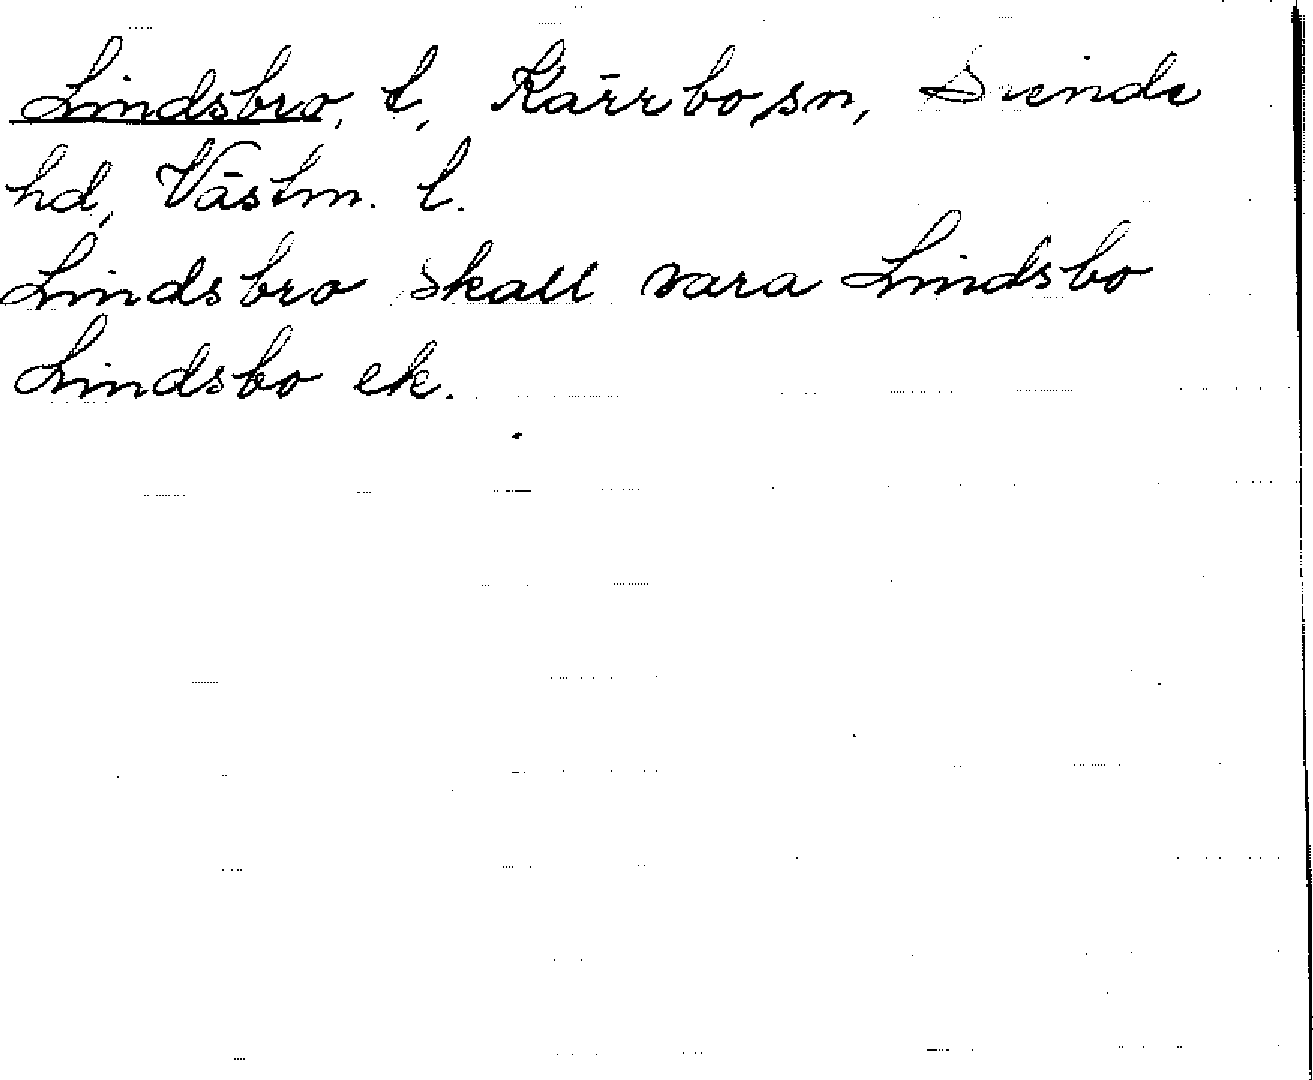 Lindsbro, t, Kärrbo sn, Siende
hd, Västm. l.
Lindsbro skall vara Lindsbo
Lindsbo ek.